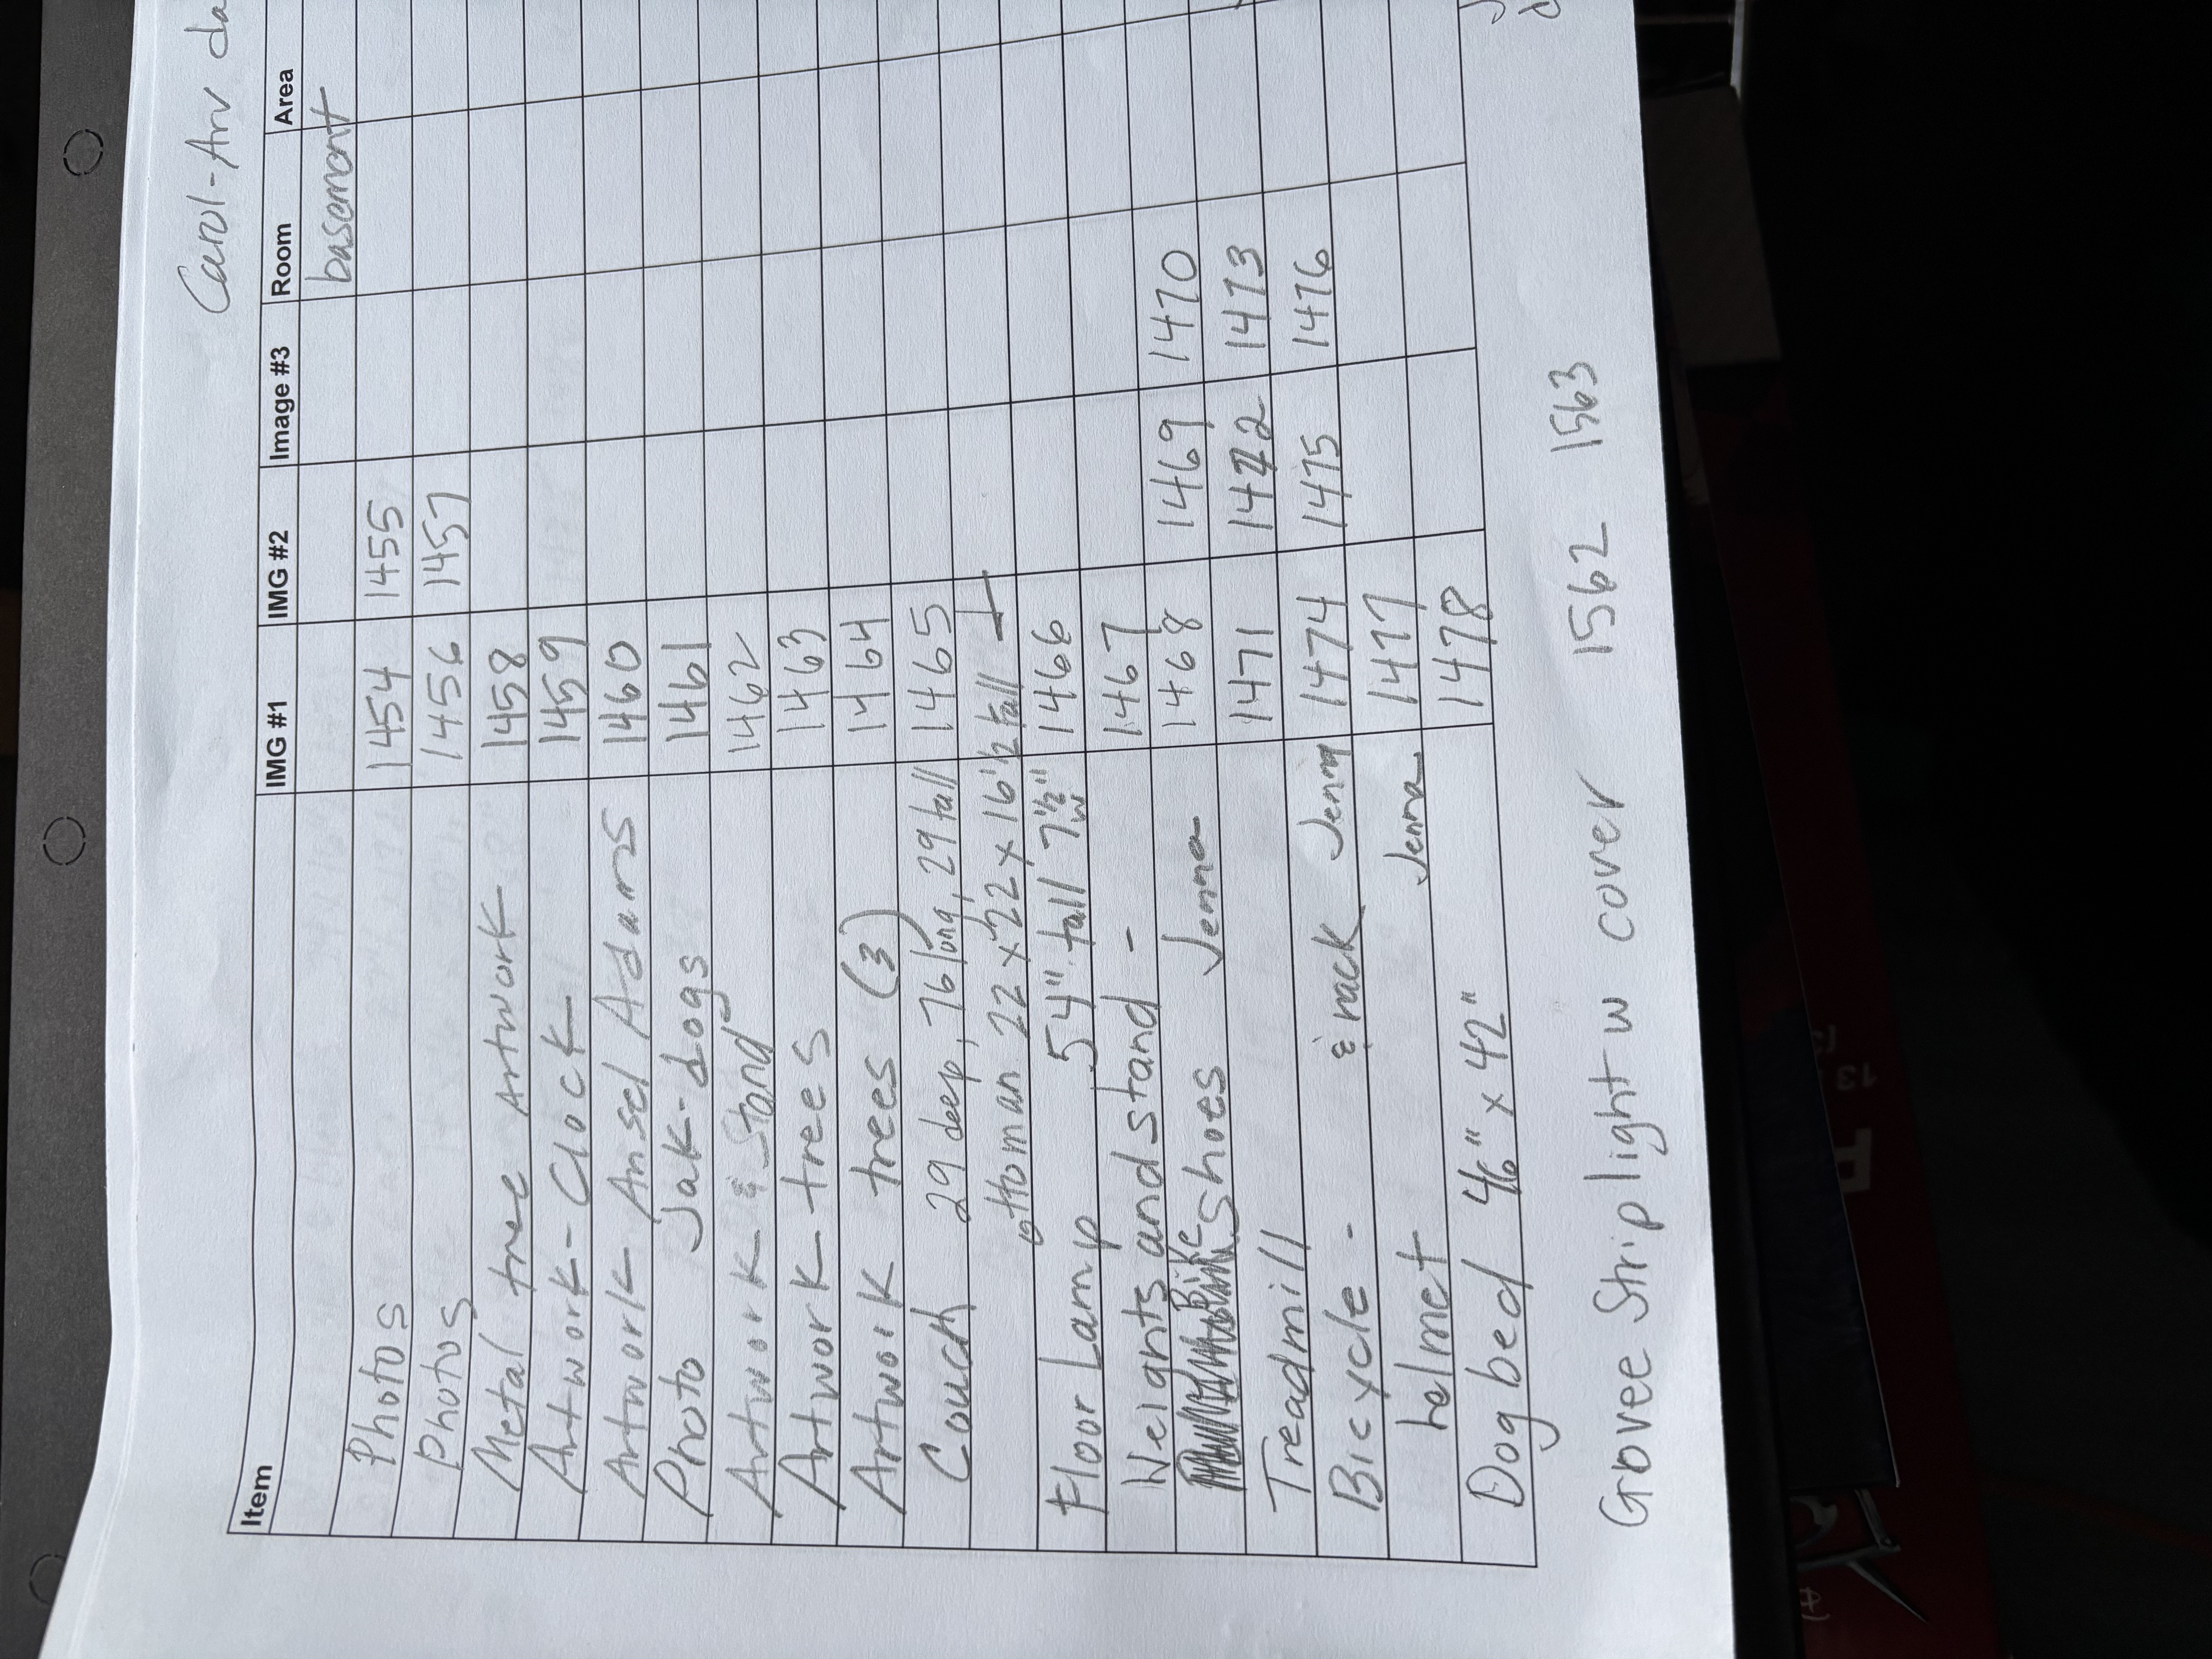 Carol-Ann da
Item IMG #1 IMG #2 Image #3 Room Area
basement
Photos 1454 1455
Photos 1456 1457
Metal tree Artwork 1458
Artwork - Clock 1459
Artwork Ansel Adams 1460
Photo Jak-dogs 1461
Artwork & Stand 1462
Artwork trees 1463
Artwork trees (3) 1464
Couch 29 deep, 76 long, 29 tall 1465
ottoman 22 x 22 x 16 1/2 tall
Floor Lamp 54" tall 7 1/2" w 1466
Weights and stand - 1467
Bike Shoes Jenna 1468 1469 1470
Treadmill 1471 1472 1473
Bicycle - & rack Jenna 1474 1475 1476
helmet Jenna 1477
Dog bed 46" x 42" 1478
Grovee Strip light w cover 1562 1563
13